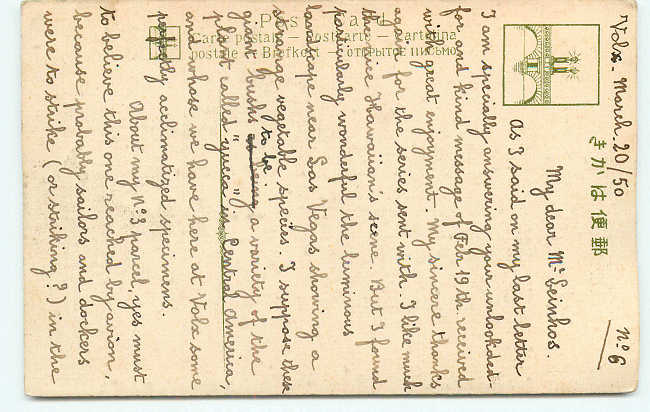 Volx. March. 20/50
Nº 6
きかは便郵
My dear Mr Leinhos
As I said on my last letter
I am specially answering your unlooked-
for and kind message of Feb. 19th. received
with great enjoyment. My sincere thanks
again for the series sent with. I like much
the nice Hawaiian's scene. But I found
particularly wonderful the luminous
landscape near Las Vegas showing a
strange vegetable species. I suppose these
giant bushs to be a variety of the
plant called "yucca" in Central America,
and whose we have here at Volx some
perfectly acclimatized specimens.
About my Nº 3 parcel, yes must
to believe this one reached by avion,
because probably sailors and dockers
were to strike (or striking?) in the
Carte postale – Postkarte – Cartolina
postale – Briefkort – ОТКРЫТОЕ ПИСЬМО